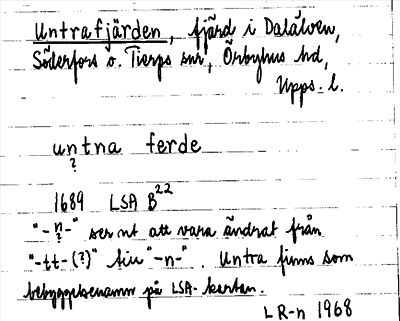 Untrafjärden, fjärd i Dalälven,
Söderfors o. Tierps snr, Örbyhus hd,
Upps. l.
untna ferde
?
1689 LSA B22
"-n-" ser nt att vara ändrat från
?
"-tt-(?)" till "-n-". Untra finns som
bebyggelsenamn på LSA-kartan.
LR-n 1968